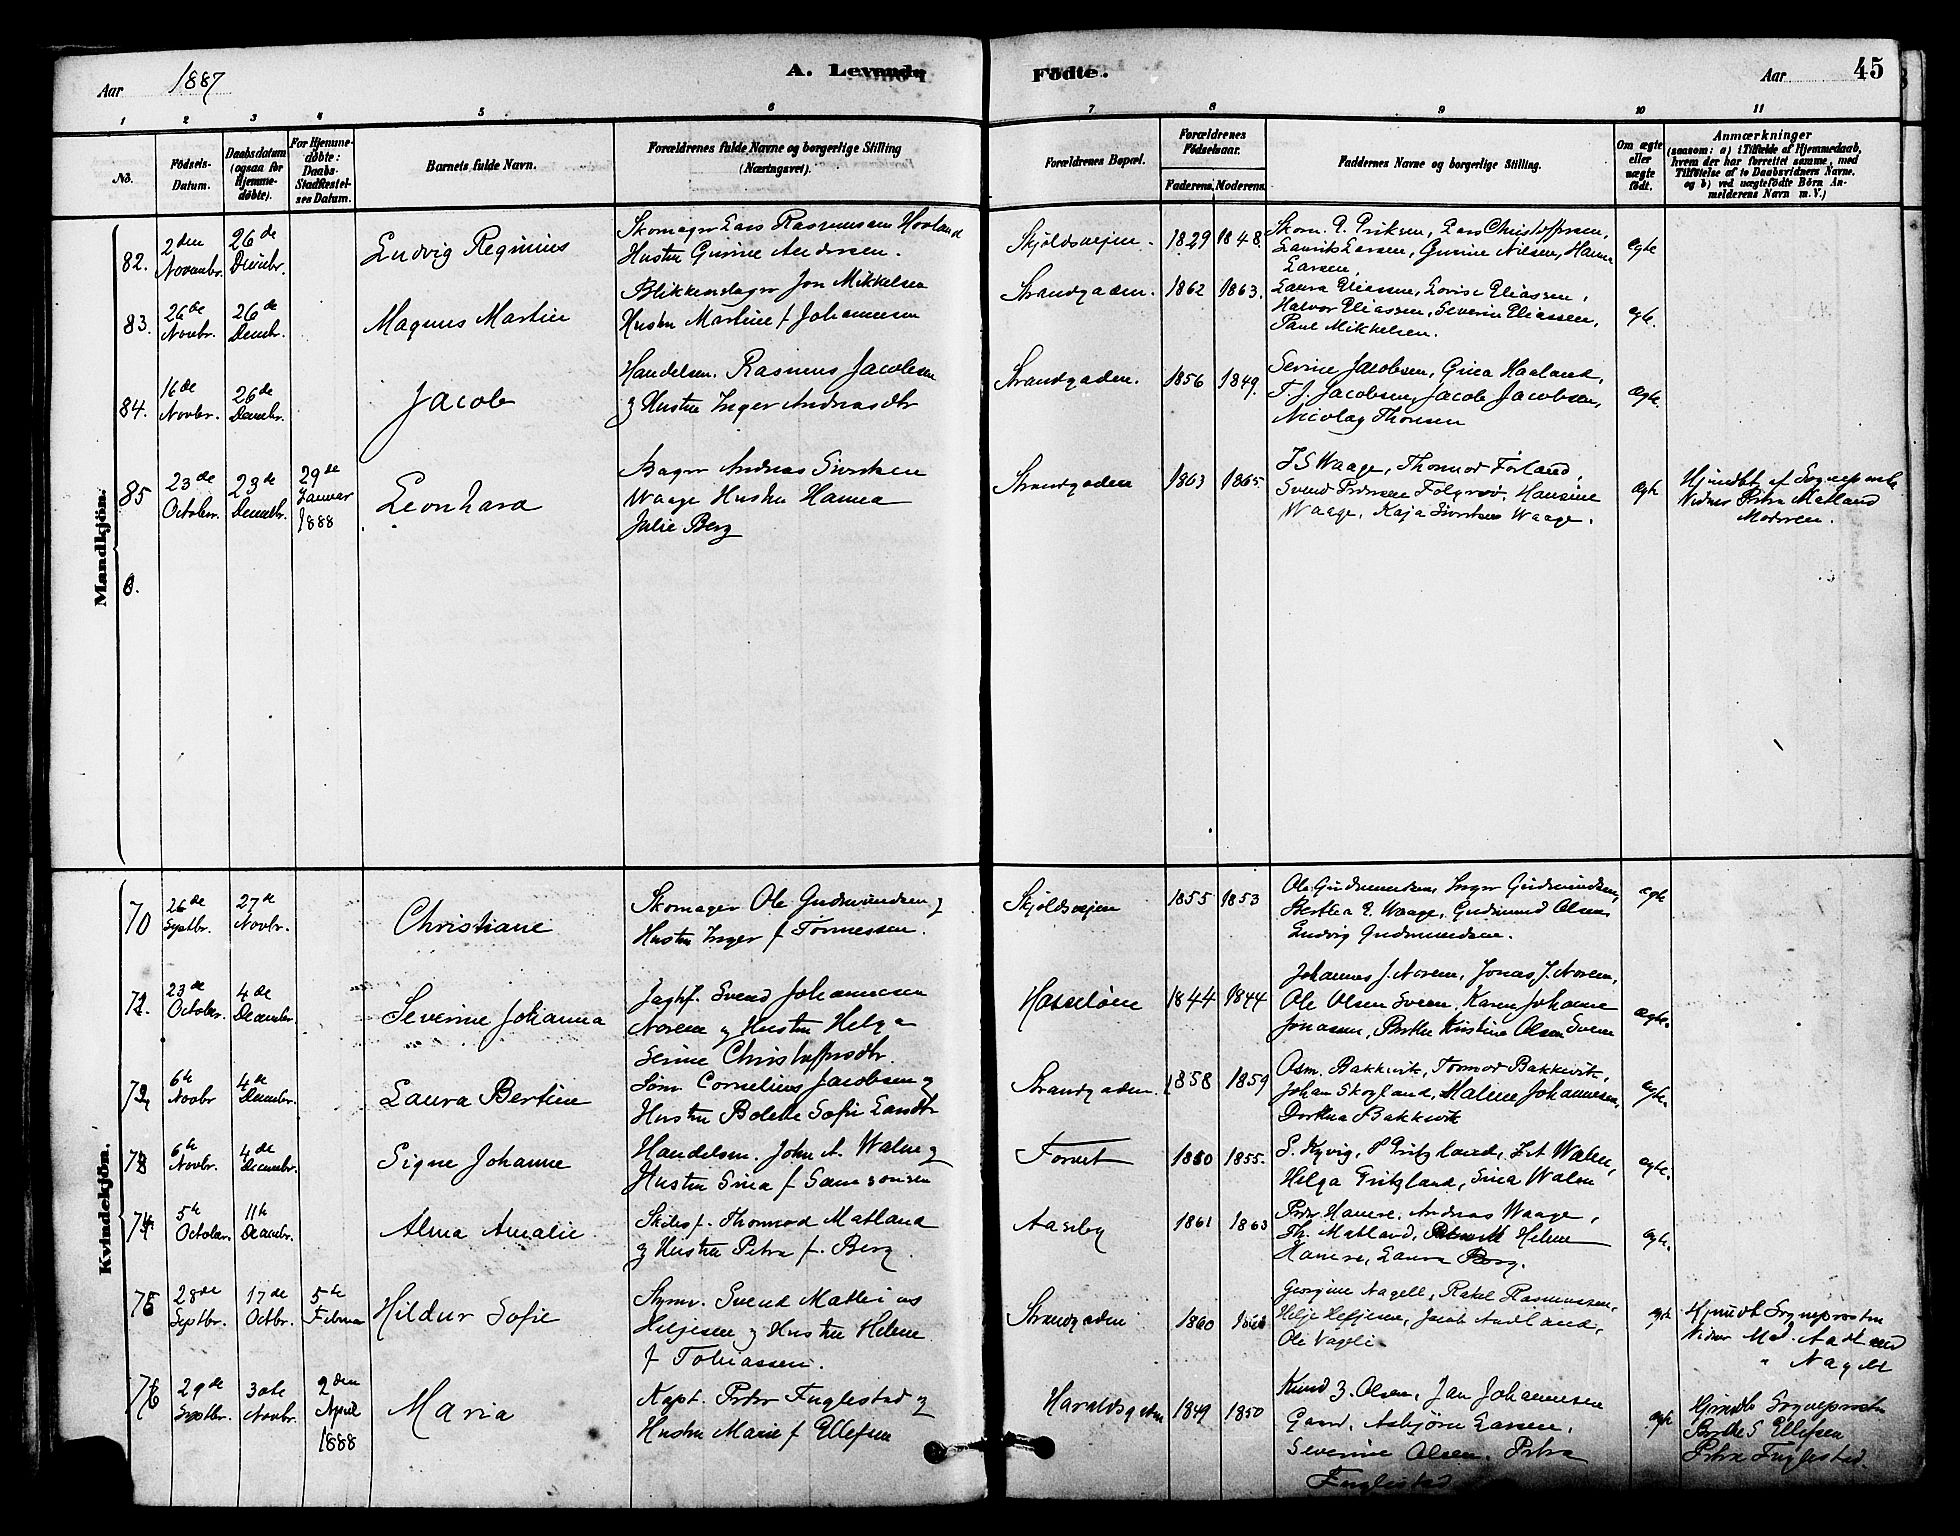 Aar 1887
A. Levende
Födte.
Aar
45
1 2 3 4 5 6 7 8 9 10 11
No.
Födsels-
Datum.
Daabsdatum
(ogsaa for
Hjemme-
døbte).
For Hjemme-
døbte:
Daabs-
Stadfæstel-
ses Datum.
Barnets fulde Navn.
Forældrenes fulde Navne og borgerlige Stilling
(Næringsvei).
Forældrenes Bopæl.
Forældrenes
Födselsaar.
Faderens. Moderens.
Faddernes Navne og borgerlige Stilling.
Om ægte
eller
uægte
født.
Anmærkninger
(saasom: a) i Tilfælde af Hjemmedaab,
hvem der har forrettet samme, med
Tilføielse af to Daabsvidners Navne,
og b) ved uægtefödte Börn An-
melderens Navn m. V.)
Mandkjön.
82.
2den
Novembr.
26de
Decmbr.
Ludvig Reginius
Skomager Lars Rasmussen Hovland
Hustru Gurine Andersen.
Skjoldsveien.
1829 1848
Skom. P. Eriksen, Lars Christoffersen,
Lauritz Larsen, Gurine Nilsen, Hanna
Larsen
ægte
83.
26de
Novbr.
26de
Decmbr.
Magnus Martin
Blikkenslager Jon Mikkelsen
Hustru Martine f Johannesen
Strandgaden.
1862 1863.
Laura Eliassen, Lovise Eliassen,
Halvor Eliassen, Severin Eliassen,
Paul Mikkelsen.
ægte.
84.
16de
Novbr.
26de
Decembr.
Jacob
Handelsm. Rasmus Jacobsen
og Hustru Inger Andreasdtr
Strandgaden.
1856 1849.
Serine Jacobsen, Gina Haaland,
T. J. Jacobsen, Jacob Jacobsen,
Nicolay Thorsen
ægte.
85
23de
October.
23de
Decembr.
29de
Januar
1888
Leonhard
Bager Andreas Sivertsen
Waage Hustru Hanna
Julie Berg
Strandgaden
1863 1865.
J S Waage, Thormod Førland,
Svend Pedersen Folgerø, Hansine
Waage, Kaja Sivertsen Waage.
ægte
Hjmdbt af Sogneprosten
Vidner Petra Matland
Moderen.
Kvindekjön.
70
26de
Septbr.
27de
Novbr.
Christiane
Skomager Ole Gudmundsen og
Hustru Inger f Tønnessen.
Skjoldsveien
1855 1853
Ole Gudmundsen, Inger Gudmundsen,
Berthea E. Waage, Gudmund Olsen,
Ludvig Gudmundsen.
ægte
71.
23de
October.
4de
Decembr.
Severine Johanna
Jagtf. Svend Johannesen
Norem og Hustru Helga
Serine Christoffersdtr.
Hasseløen
1844 1844
Johannes J. Norem, Jonas J. Norem,
Ole Olsen Sveen, Karen Johanne
Jonassen, Berthe Kristine Olsen Sveen
ægte.
72
6te
Novbr
4de
Decembr.
Laura Bertine
Søm. Cornelius Jacobsen og
Hustru Bolette Sofie Larsdtr
Strandgaden.
1858 1859
Osm. Bakkevik, Tormod Bakkevik,
Johan Skogland, Malene Johannesen,
Dorthea Bakkevik
ægte.
73
6te
Novbr.
4de
Decembr.
Signe Johanne
Handelsm. John A. Walen og
Hustru Sina f Samsonsen
Torvet
1850 1855.
S. Kyvig, P Eritzland, J A Walen,
Helga Eritzland, Sina Walen
ægte.
74
5te
October.
11te
Decembr.
Alma Amalie
Skibsf. Thormod Matland
og Hustru Petra f. Berg.
Aaseby
1861 1863
Peder Havere, Andreas Waage,
Th. Matland, Helene
Havere, Laura Berg.
ægte.
75
28de
Septbr.
17de
Octbr.
5te
Februar
Hildur Sofie
Styrm. Svend Mathias
Heljesen og Hustru Helene
f Tobiassen.
Strandgaden
1860
Georgine Nagell, Rakel Rasmussen,
Helje Heljesen, Jacob Aadland,
Ole Vagle
ægte
Hjmdbt Sogneprosten
Vidner Mad. Aadland
" Nagell
76
29de
Septbr.
30te
Novbr.
2den
April
1888
Maria
Kapt. Peder Fuglestad og
Hustru Marie f Ellefsen
Haraldsgaden
1849 1850
Knud Z. Olsen, Jan Johannesen
Gard, Asbjørn Larsen,
Severine Olsen, Petra
Fuglestad
ægte
Hjmdbt Sogneprosten
Berthe S Ellefsen
Petra Fuglestad.